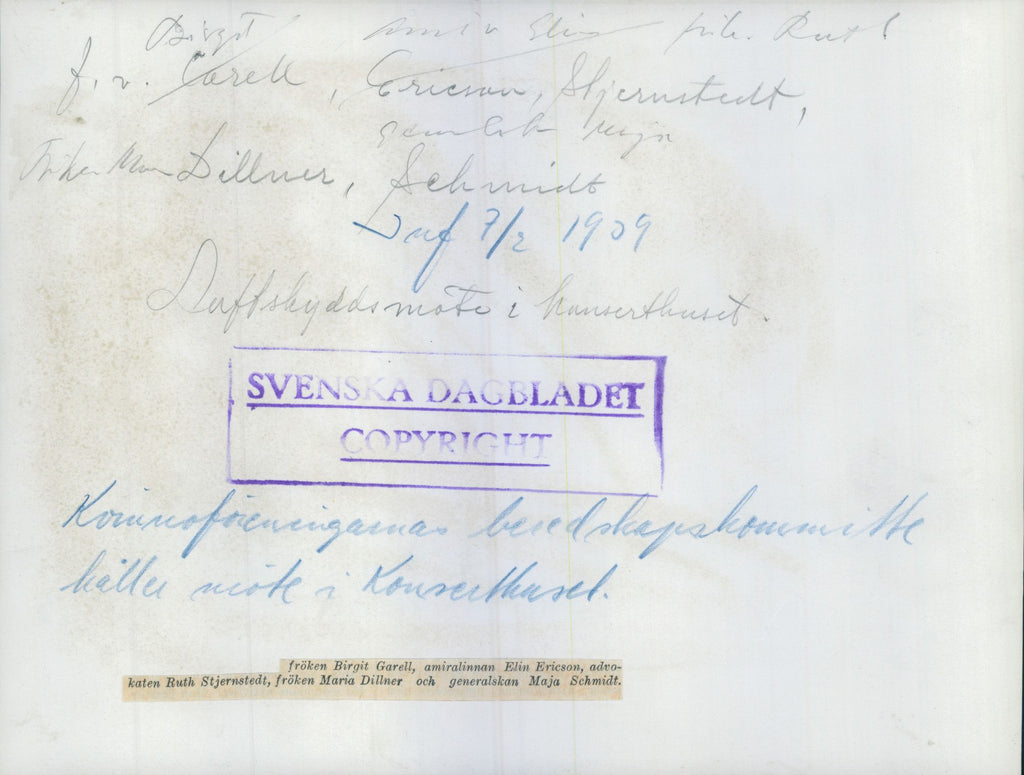 Birgit amir Elin frk. Ruth
f. v. Garell, Ericson, Stjernstedt,
Maja
Fröken Dillner, Schmidt
Inf 7/2 1939
Luftskyddsmöte i konserthuset.
SVENSKA DAGBLADET
COPYRIGHT
Kvinnoföreningarnas beredskapskommitté
håller möte i Konserthuset.
fröken Birgit Garell, amiralinnan Elin Ericson, advo-
katen Ruth Stjernstedt, fröken Maria Dillner och generalskan Maja Schmidt.